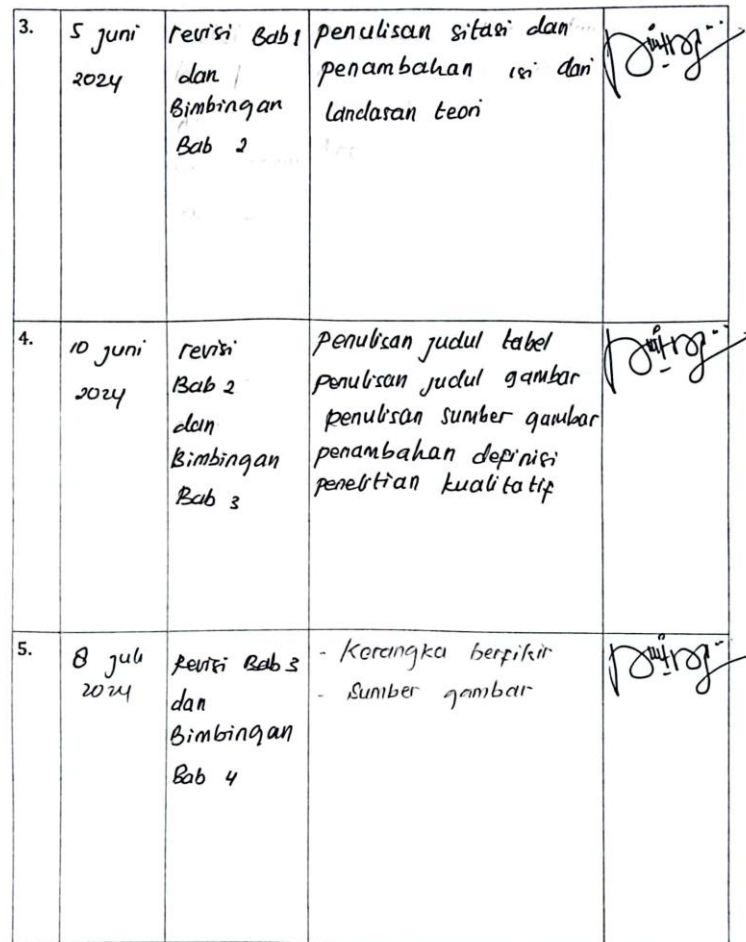 3.
5 juni
2024
revisi Bab 1
dan
Bimbingan
Bab 2
penulisan sitasi dan
penambahan isi dari
landasan teori
4.
10 juni
2024
revisi
Bab 2
dan
Bimbingan
Bab 3
penulisan judul tabel
penulisan judul gambar
penulisan sumber gambar
penambahan definisi
penelitian kualitatif
5.
8 juli
2024
Revisi Bab 3
dan
Bimbingan
Bab 4
- Kerangka berfikir
- Sumber gambar